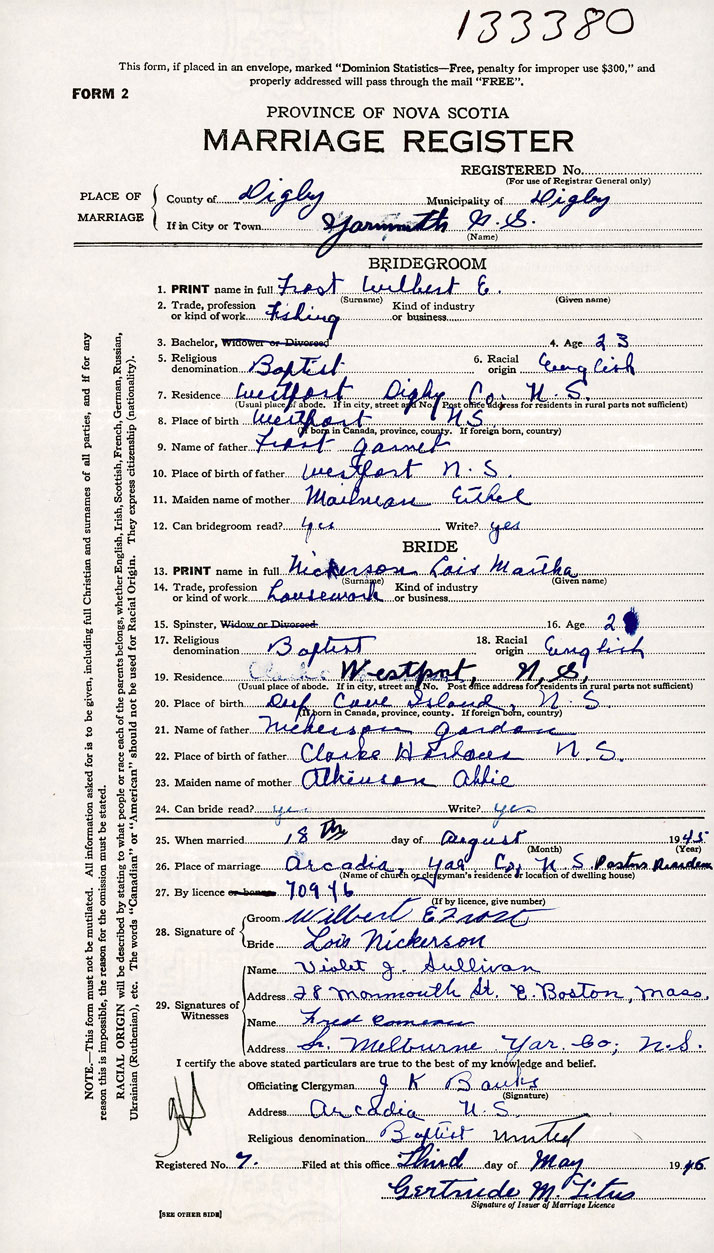 133380
This form, if placed in an envelope, marked "Dominion Statistics—Free, penalty for improper use $300," and
properly addressed will pass through the mail "FREE".
FORM 2
PROVINCE OF NOVA SCOTIA
MARRIAGE REGISTER
REGISTERED No.
(For use of Registrar General only)
PLACE OF MARRIAGE
County of Digby Municipality of Digby
If in City or Town Yarmouth N.S.
(Name)
BRIDEGROOM
1. PRINT name in full Frost Wilbert E.
(Surname) (Given name)
2. Trade, profession or kind of work Fishing Kind of industry or business
3. Bachelor, Widower or Divorced 4. Age 23
5. Religious denomination Baptist 6. Racial origin English
7. Residence Westport Digby Co. N.S.
(Usual place of abode. If in city, street and No. Post office address for residents in rural parts not sufficient)
8. Place of birth Westport N.S.
(If born in Canada, province, county. If foreign born, country)
9. Name of father Frost Garnet
10. Place of birth of father Westport N.S.
11. Maiden name of mother Ethel
12. Can bridegroom read? yes Write? yes
BRIDE
13. PRINT name in full Nickerson Lois Martha
(Surname) (Given name)
14. Trade, profession or kind of work housework Kind of industry or business
15. Spinster, Widow or Divorced 16. Age 2
17. Religious denomination Baptist 18. Racial origin English
19. Residence Westport, N.S.
(Usual place of abode. If in city, street and No. Post office address for residents in rural parts not sufficient)
20. Place of birth Cove Island, N.S.
(If born in Canada, province, county. If foreign born, country)
21. Name of father Nickerson Gordon
22. Place of birth of father Clarke Harbour N.S.
23. Maiden name of mother Atkinson Abbie
24. Can bride read? yes Write? yes
25. When married 18th day of August 1945
(Month) (Year)
26. Place of marriage Arcadia, Yar Co, N.S. Pastors Residence
(Name of church or clergyman's residence or location of dwelling house)
27. By licence or banns 70946
(If by licence, give number)
28. Signature of
Groom Wilbert E Frost
Bride Lois Nickerson
29. Signatures of Witnesses
Name Violet J. Sullivan
Address 28 Monmouth St. E. Boston, Mass.
Name Fred Cameron
Address Sr. Melburne Yar. Co; N.S.
I certify the above stated particulars are true to the best of my knowledge and belief.
Officiating Clergyman J K Banks
(Signature)
Address Arcadia N.S.
Religious denomination Baptist United
Registered No. 7. Filed at this office Third day of May 1946
Gertrude M. Titus
Signature of Issuer of Marriage Licence
[SEE OTHER SIDE]
NOTE.—This form must not be mutilated. All information asked for is to be given, including full Christian and surnames of all parties, and if for any
reason this is impossible, the reason for the omission must be stated.
RACIAL ORIGIN will be described by stating to what people or race each of the parents belongs, whether English, Irish, Scottish, French, German, Russian,
Ukrainian (Ruthenian), etc. The words "Canadian" or "American" should not be used for Racial Origin. They express citizenship (nationality).